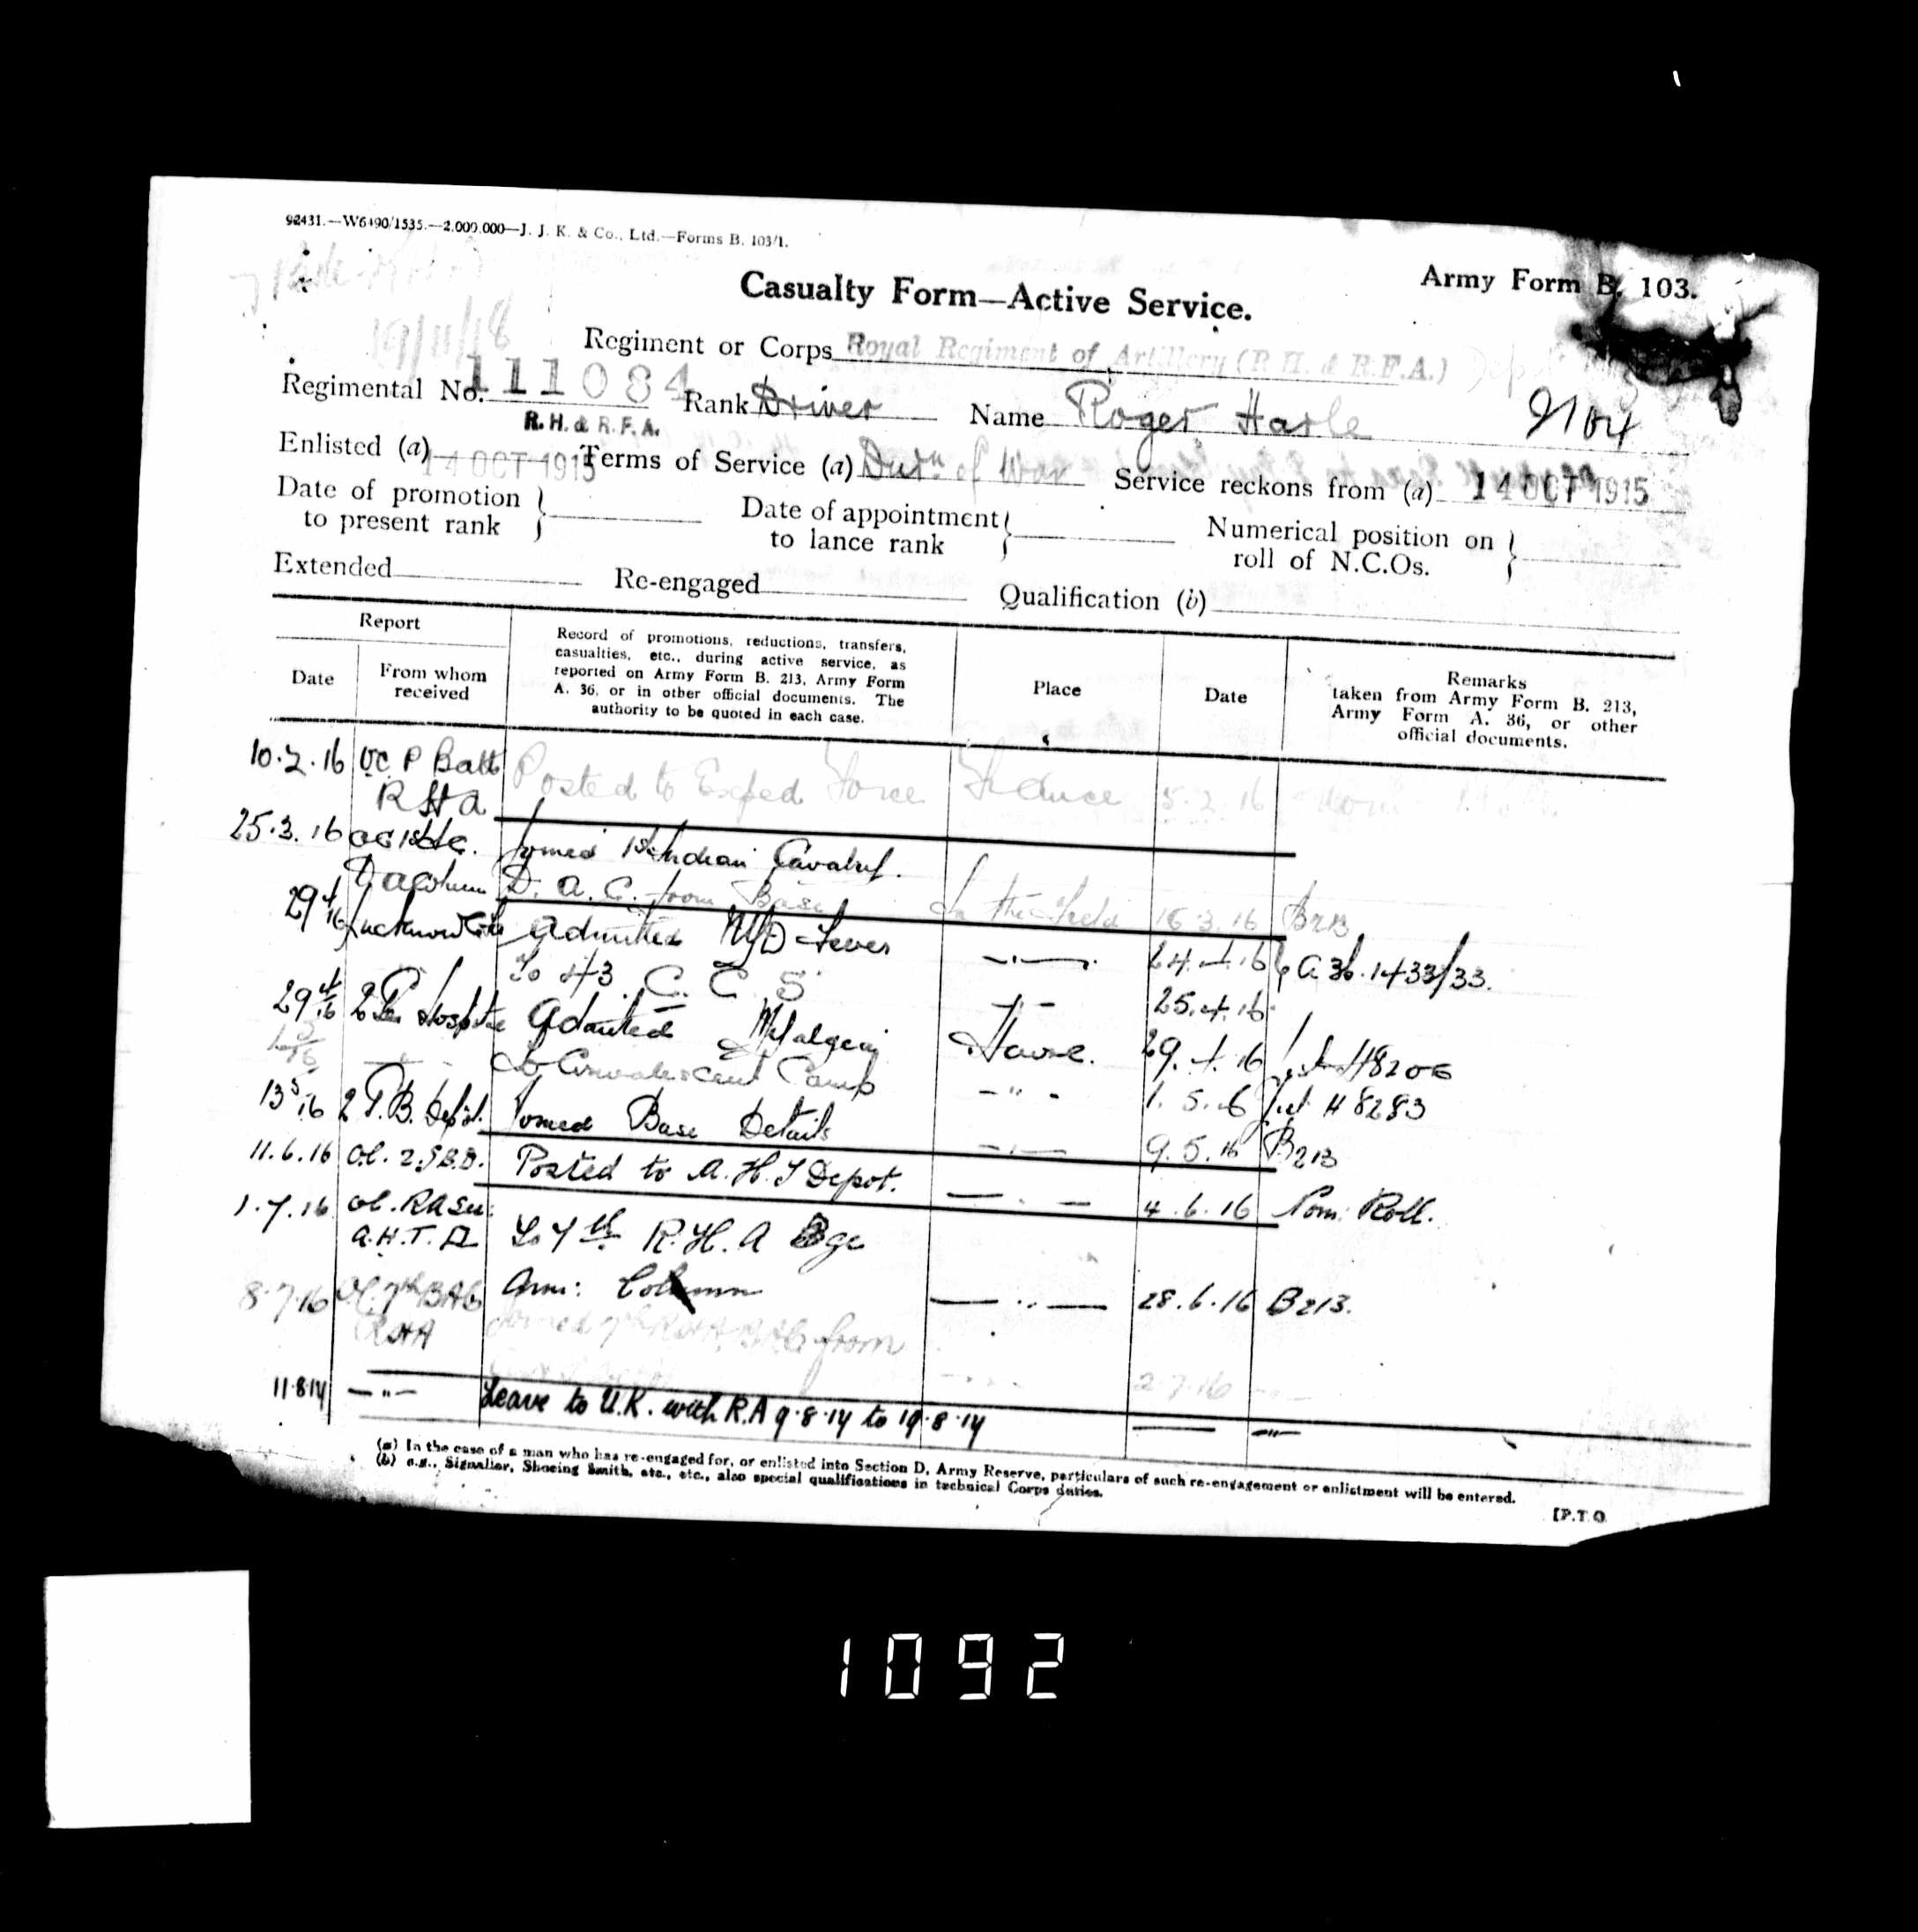 92431.—W6490/1535.—2,000,000—J. J. K. & Co., Ltd.—Forms B. 103/1.
Army Form B. 103.
Casualty Form—Active Service.
Regiment or Corps Royal Regiment of Artillery (R.H. & R.F.A.)
Regimental No. 111084 Rank Driver Name Roger Harle
R.H. & R.F.A.
Enlisted (a) 14 OCT 1915 Terms of Service (a) Durn of War Service reckons from (a) 14 OCT 1915
Date of promotion to present rank Date of appointment to lance rank Numerical position on roll of N.C.Os.
Extended Re-engaged Qualification (b)
Report
Date From whom received
Record of promotions, reductions, transfers,
casualties, etc., during active service, as
reported on Army Form B. 213, Army Form
A. 36, or in other official documents. The
authority to be quoted in each case.
Place
Date
Remarks
taken from Army Form B. 213,
Army Form A. 36, or other
official documents.
10.2.16 OC P Batt Posted to Exped Force France 5.2.16
RHA
25.3.16 Joined 1st Indian Cavalry.
D. A. C. from Base In the Field 16.3.16 B213
29 4/16 Lucknow Admitted NYD Fever —"— 24.4.16 A 36.1433/33.
To 43. C. C. S —"— 25.4.16
29 4/16 2 Admitted Myalgia Havre. 29.4.16 H8206
To Convalescent Camp —"— 1.5.16 H 8283
13 5/16 2 T.B. Depot. Joined Base Details —"— 9.5.16 B213
11.6.16 OC. 2.G.B.D. Posted to A.H.T Depot. —"— 4.6.16 Nom: Roll.
1.7.16 OC. RA
A.H.T.D To 7th R.H.A Bge
Amn: Column —"— 28.6.16 B213.
8.7.16 OC. 7th BAC Joined 7th RHA BAC from
RHA
2.7.16
11.8.17 —"— Leave to U.K. with R.A 9.8.17 to 19.8.17 —"—
(a) In the case of a man who has re-engaged for, or enlisted into Section D, Army Reserve, particulars of such re-engagement or enlistment will be entered.
(b) e.g., Signaller, Shoeing Smith, etc., etc., also special qualifications in technical Corps duties.
[P.T.O.
1092